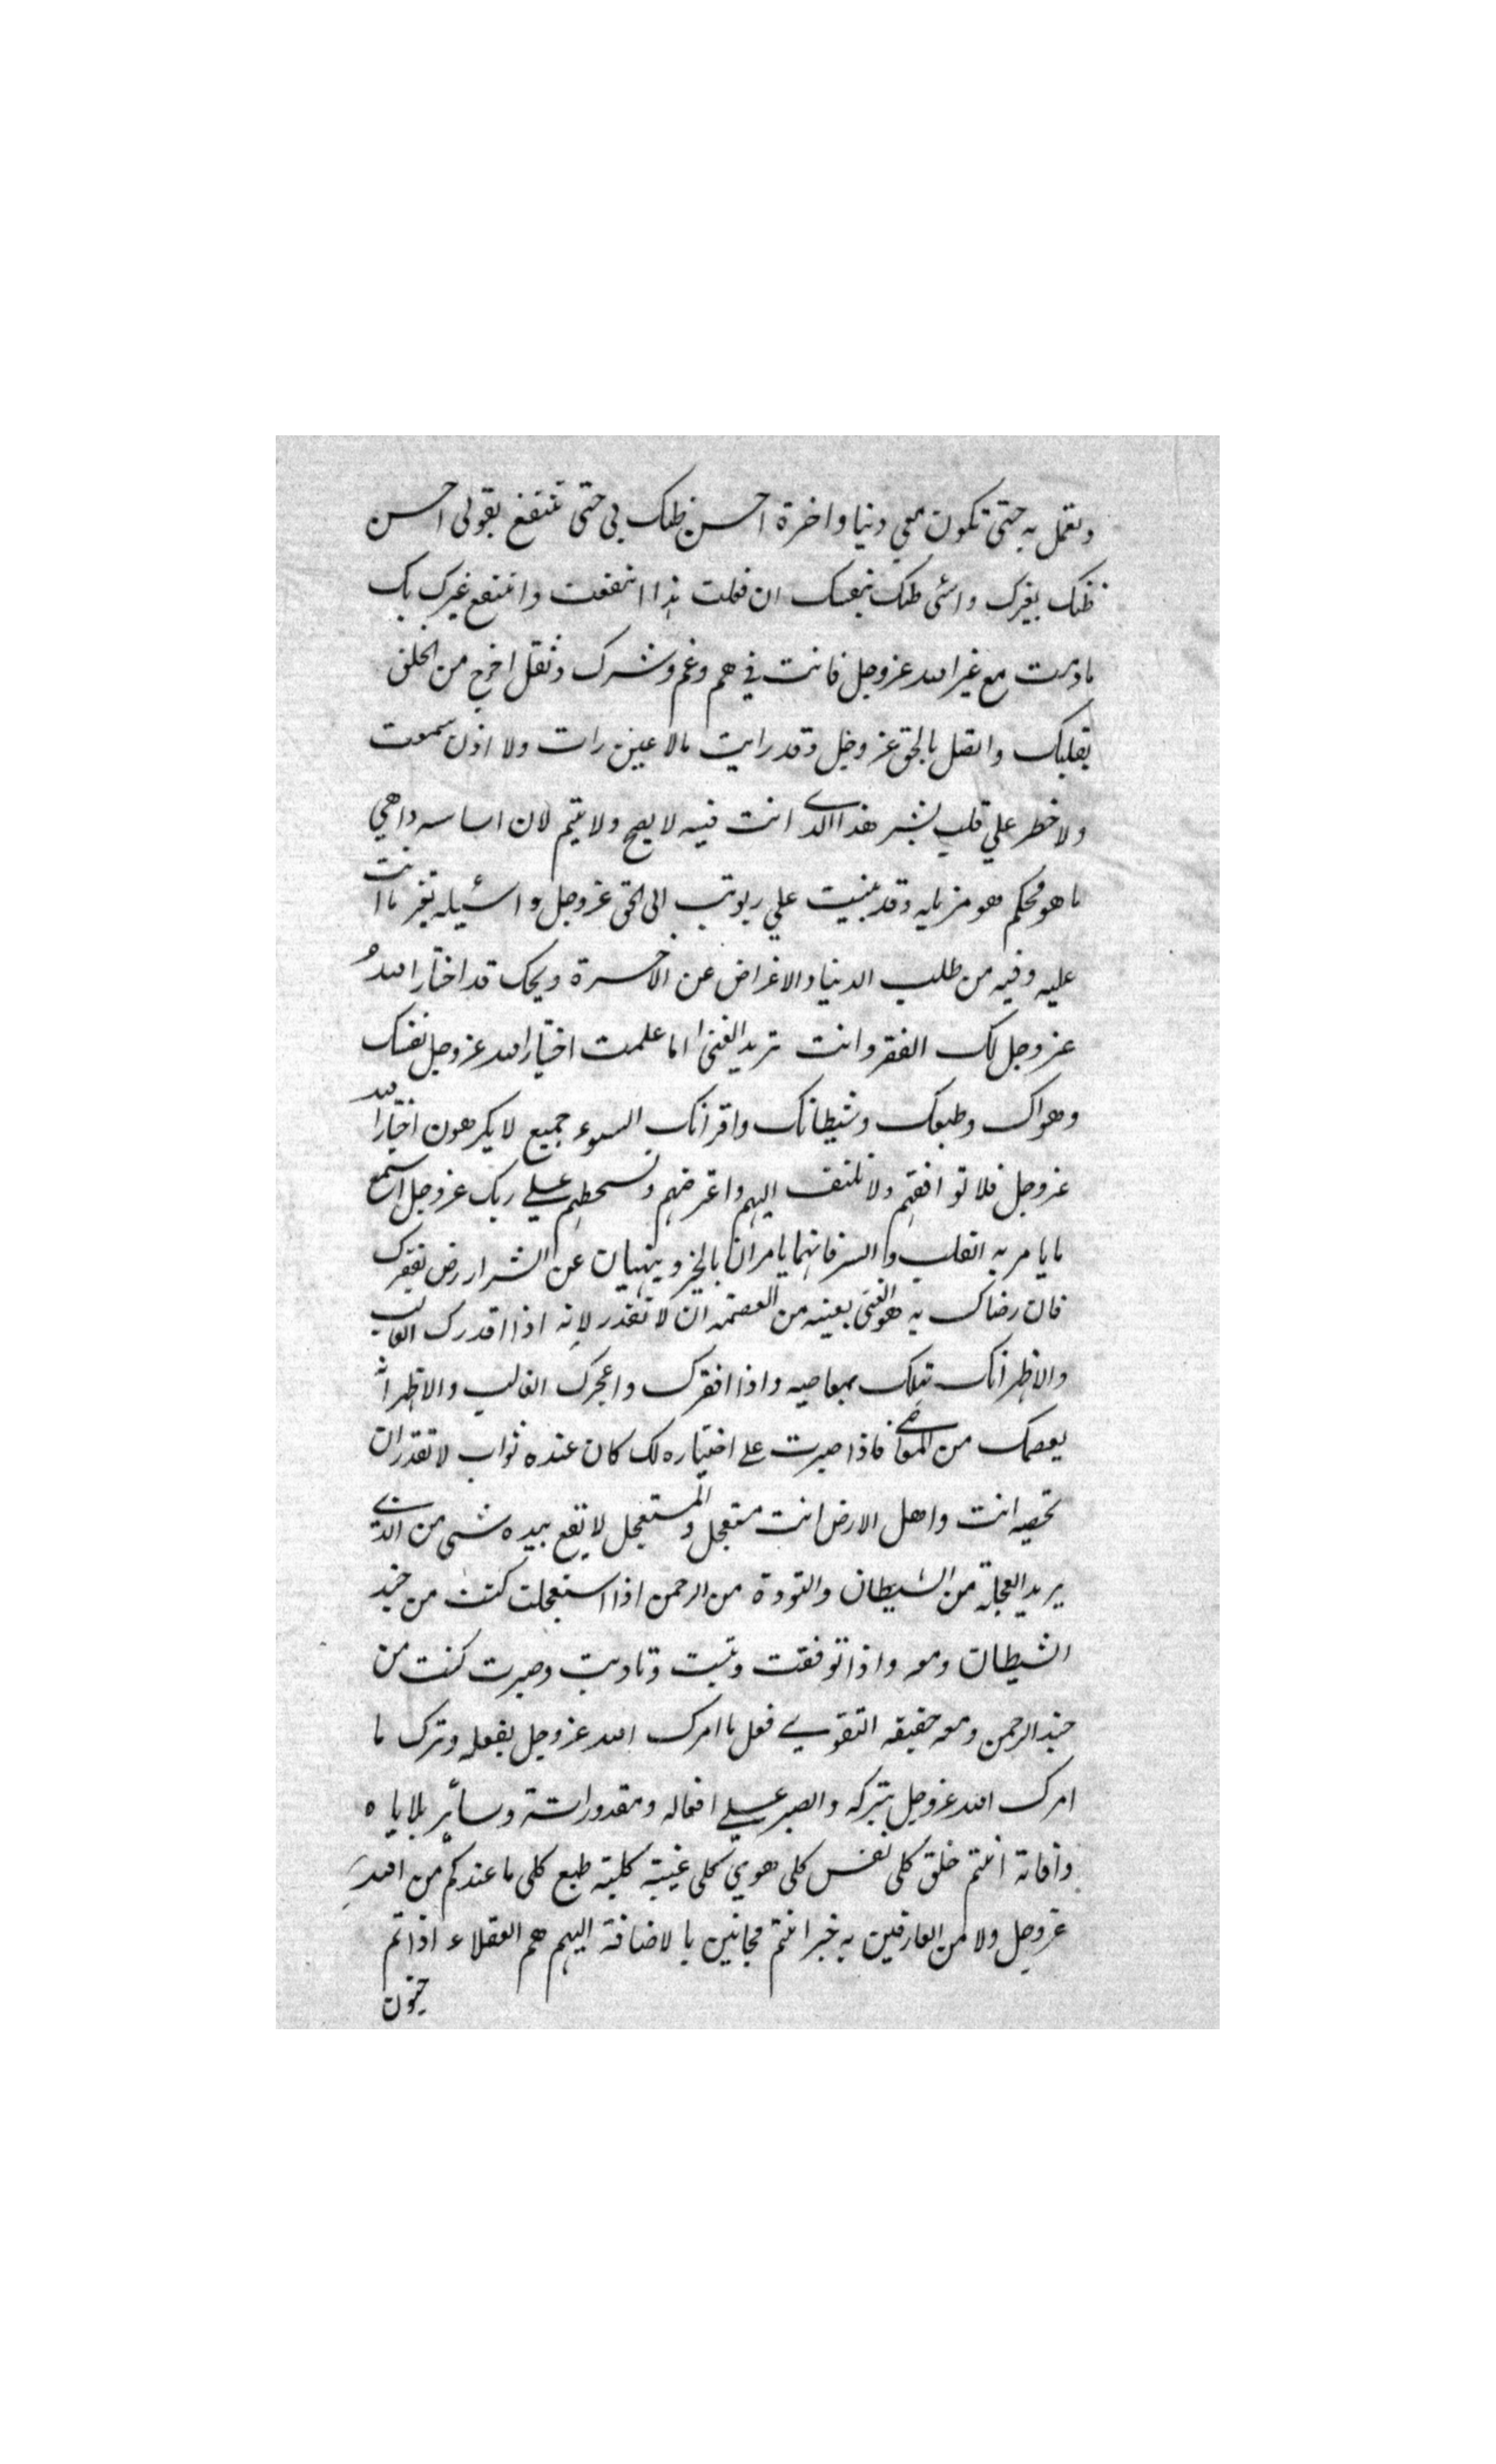 وتعمل به حتى تكون معي دنيا واخرة احسن ظنك بي حتى تنتفع بقولي احسن
ظنك بغيرك واسئ ظنك بنفسك ان فعلت هذا انتفعت وانتفع غيرك بك
مادمت مع غير الله عزوجل فانت في هم وغم وشرك وثقل اخرج من الخلق
بقلبك واتصل بالحق عزوجل وقد رايت مالا عين رات ولا اذن سمعت
ولا خطر علي قلب بشر هذا الذي انت فيه لا يصح ولا يتم لان اساسه واهي
ما هو محكم هو مزبله وقد بنيت علي ربوة تب الى الحق عزوجل واسئله تغير ما انت
عليه وفيه من طلب الدنيا والاعراض عن الاخرة ويحك قد اختار الله
عزوجل لك الفقر وانت تريد الغنى اما علمت اختيار الله عزوجل نفسك
وهواك وطبعك وشيطانك واقرانك السوء جميع لا يكرهون اختيار الله
عزوجل فلا توافقهم ولا تلتفت اليهم واعتراضهم وتسخطهم على ربك عزوجل اسمع
ما يامر به القلب والسر فانهما يامران بالخير وينهيان عن الشر ارض بفقرك
فان رضاك به هو الغنى بعينه من العصمه ان لا تقدر لانه اذا اقدرك الغالب
والاظهر انك تهلك بمعاصيه واذا افقرك واعجزك الغالب والاظهر انه
يعصمك من المعاصي فاذا صبرت على اختياره لك كان عنده ثواب لا تقدر ان
تحصيه انت واهل الارض انت مستعجل والمستعجل لا يقع بيده شى من الذي
يريد العجلة من الشيطان والتودة من الرحمن اذا استعجلت كنت من جند
الشيطان ومعه واذا توفقت وتثبت وتادبت وصبرت كنت من
جند الرحمن ومعه حقيقه التقوي فعل ما امرك الله عزوجل بفعله وترك ما
امرك الله عزوجل بتركه والصبر علي افعاله ومقدوراته وسائر بلاياه
وافاته انتم خلق كلى نفس كلى هوي كلى غيبته كليته طبع كلى ما عندكم من الله
عزوجل ولا من العارفين به خبر انتم مجانين بالاضافة اليهم هم العقلاء اذا تم
جنون